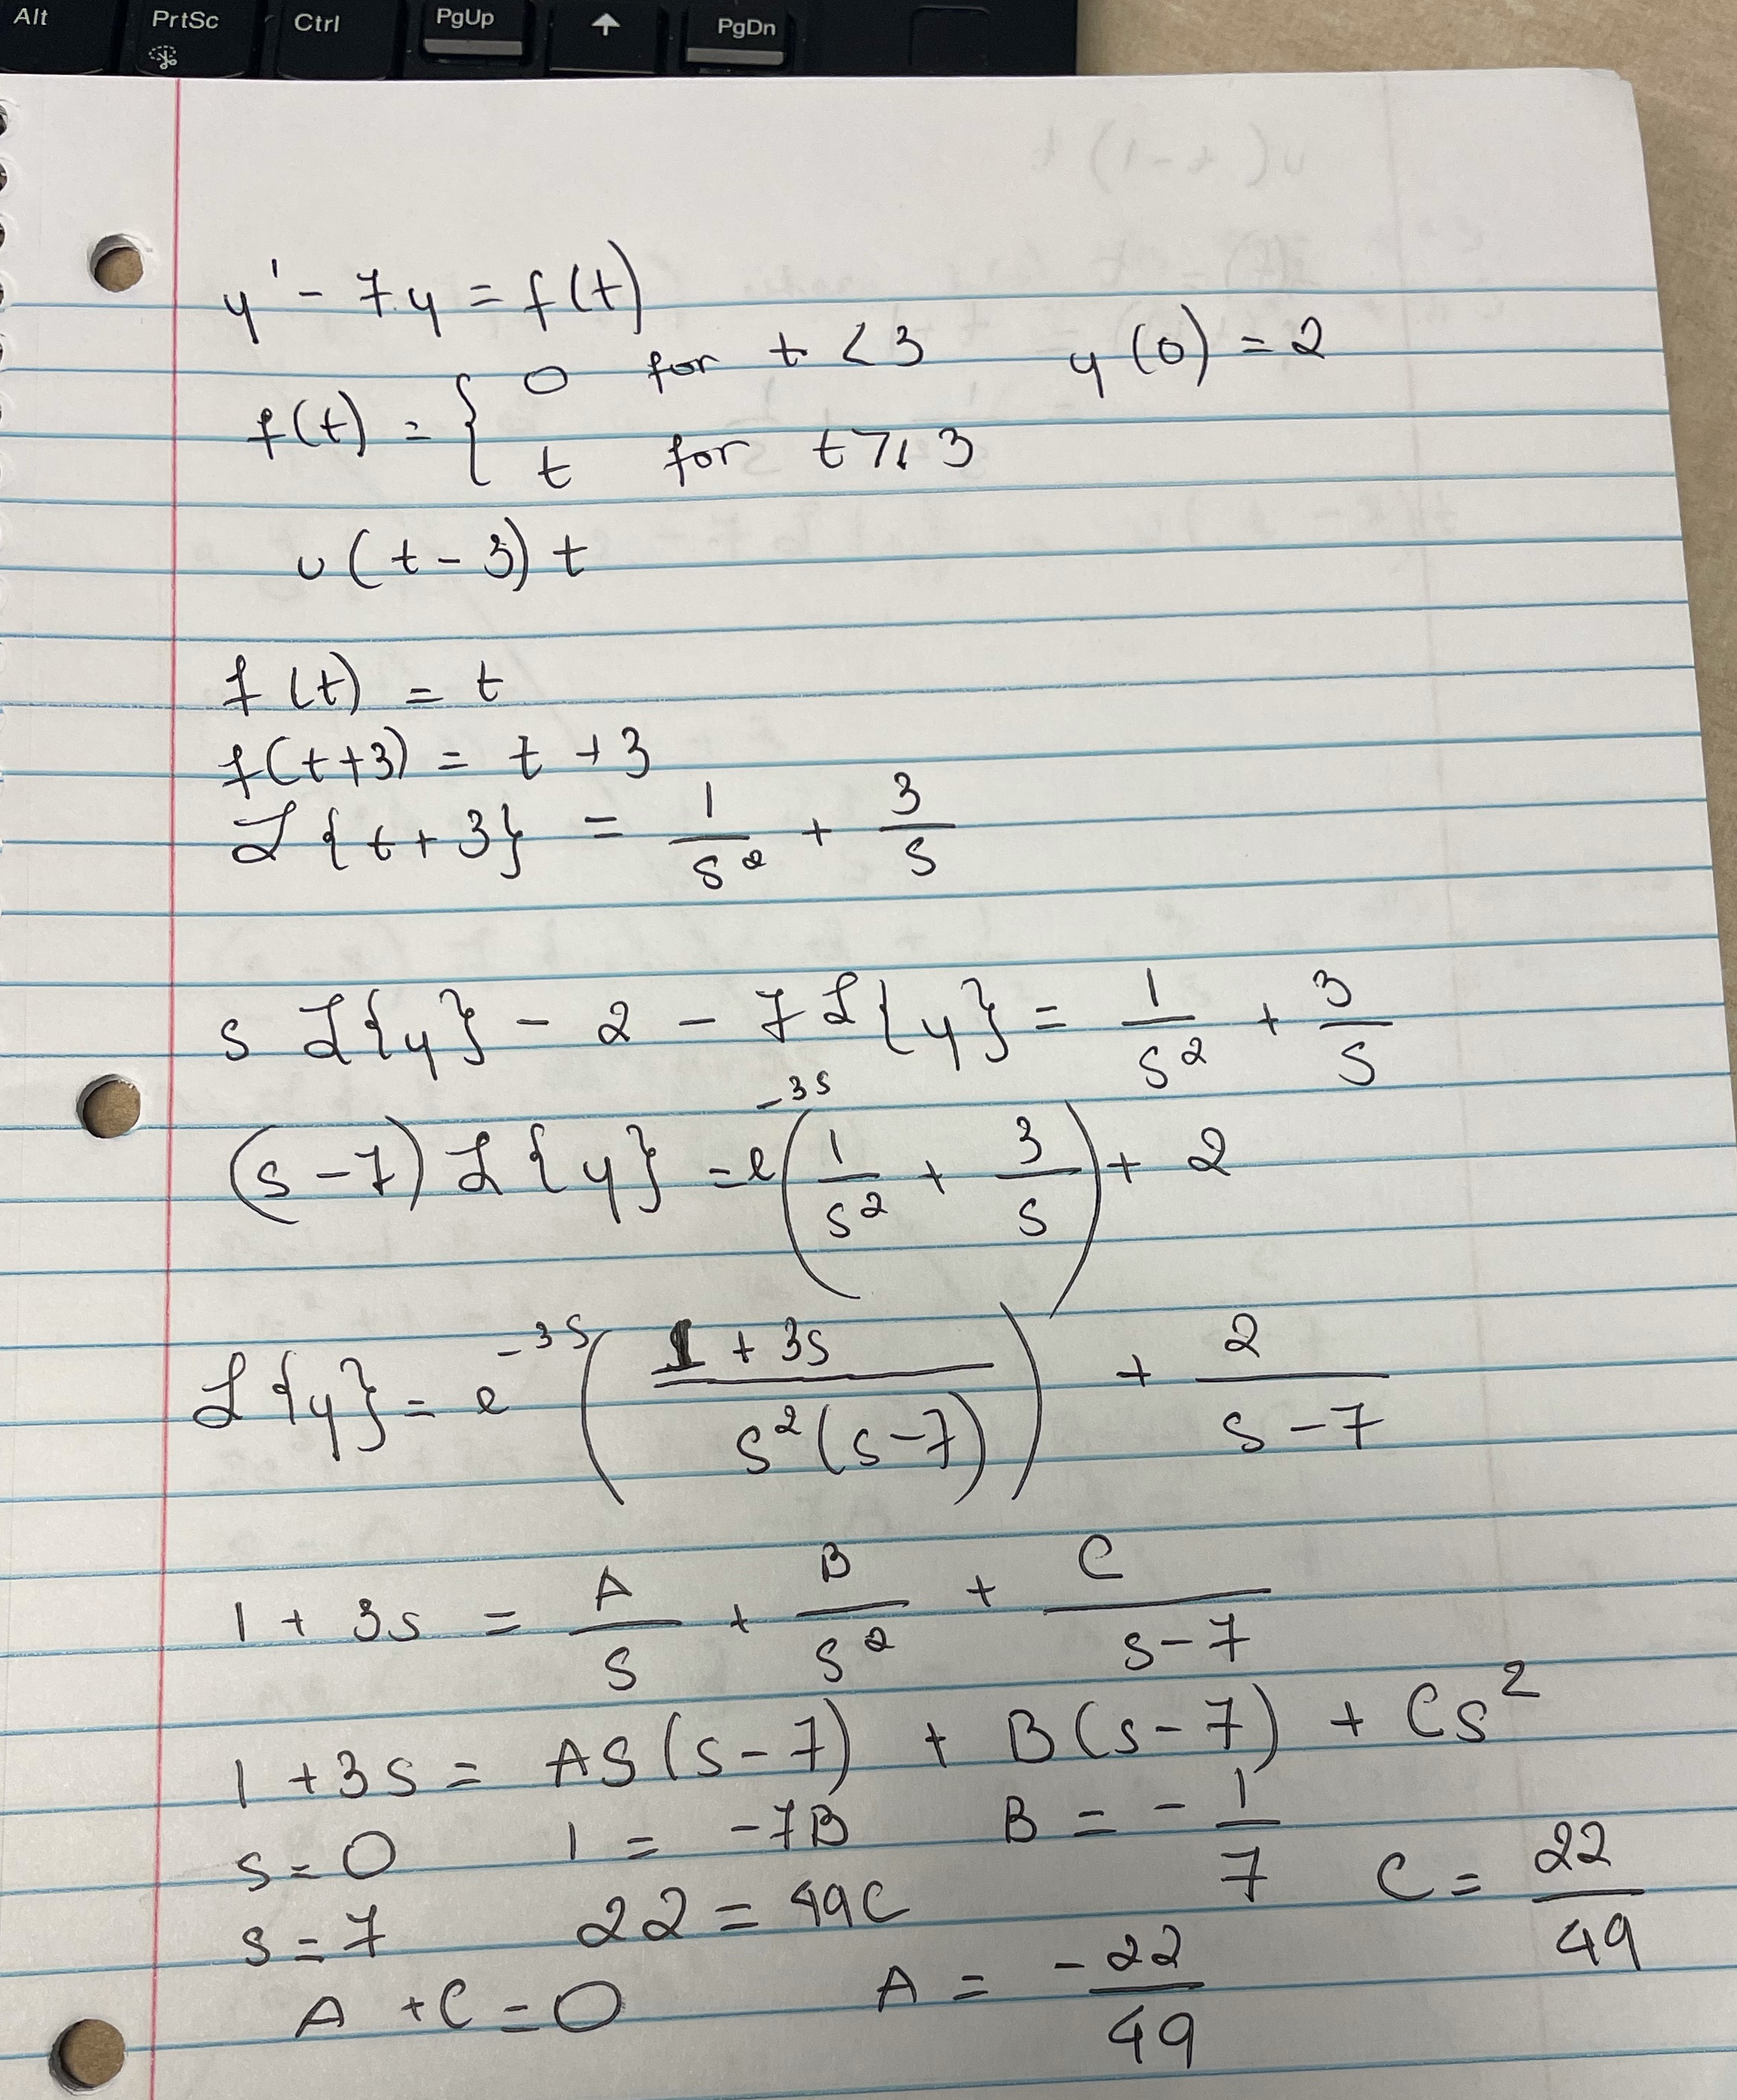 Alt PrtSc Ctrl PgUp ↑ PgDn
y' - 7y = f(t)
f(t) = { 0 for t < 3 y(0) = 2
t for t ⩾ 3
u(t-3)t
f(t) = t
f(t+3) = t+3
ℒ{t+3} = 1/s² + 3/s
s ℒ{y} - 2 - 7ℒ{y} = 1/s² + 3/s
(s-7) ℒ{y} = e^-3s (1/s² + 3/s) + 2
ℒ{y} = e^-3s ((1+3s)/(s²(s-7))) + 2/(s-7)
1 + 3s = A/s + B/s² + C/(s-7)
1 + 3s = AS(s-7) + B(s-7) + Cs²
s=0 1 = -7B B = -1/7
s=7 22 = 49C C = 22/49
A + C = 0 A = -22/49